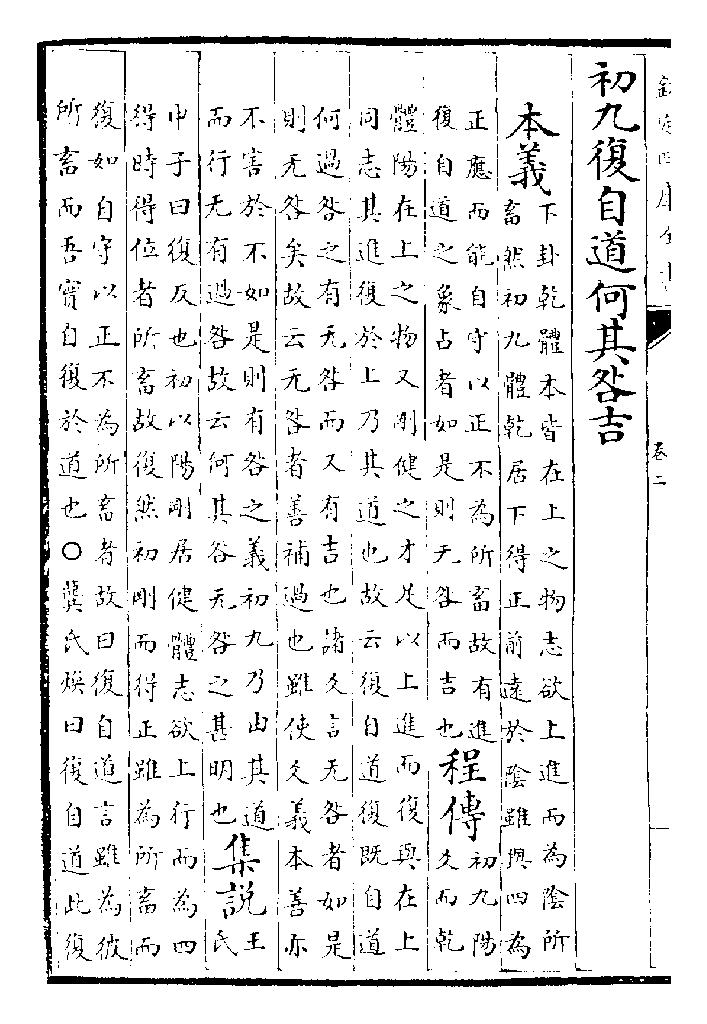 欽定四庫全書
卷二
初九復自道何其咎吉
本義
下卦乾體本皆在上之物志欲上進而為陰所
畜然初九體乾居下得正前遠於陰雖與四為
正應而能自守以正不為所畜故有進
復自道之象占者如是則无咎而吉也
程傳
初九陽
爻而乾
體陽在上之物又剛健之才足以上進而復與在上
同志其進復於上乃其道也故云復自道復既自道
何過咎之有无咎而又有吉也諸爻言无咎者如是
則无咎矣故云无咎者善補過也雖使爻義本善亦
不害於不如是則有咎之義初九乃由其道
而行无有過咎故云何其咎无咎之甚明也
集說
王
氏
申子曰復反也初以陽剛居健體志欲上行而為四
得時得位者所畜故復然初剛而得正雖為所畜而
復如自守以正不為所畜者故曰復自道言雖為彼
所畜而吾實自復於道也○龔氏煥曰復自道此復